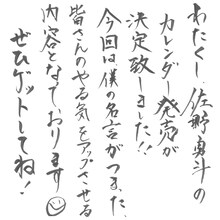 わたくし、佐野勇斗の
カレンダー発売が
決定致しました!!
今回は僕の名言がつまった、
皆さんのやる気をアップさせる
内容となっております
ぜひゲットしてね!